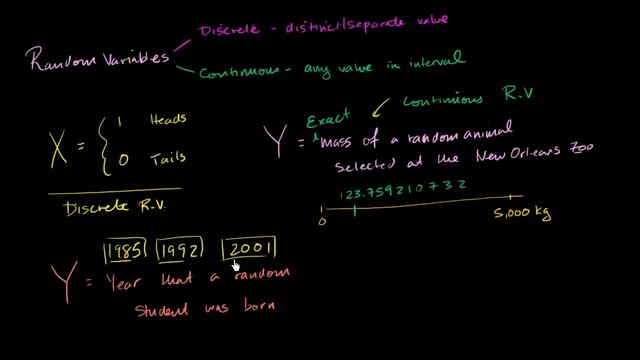 Discrete - distinct/separate value
Random Variables
Continuous - any value in interval
Continuous R.V
Exact
X = { 1 Heads
0 Tails
Discrete R.V.
Y = mass of a random animal
selected at the New Orleans Zoo
123.759210732
0
5,000 kg
1985 1992 2001
Y = Year that a random
student was born